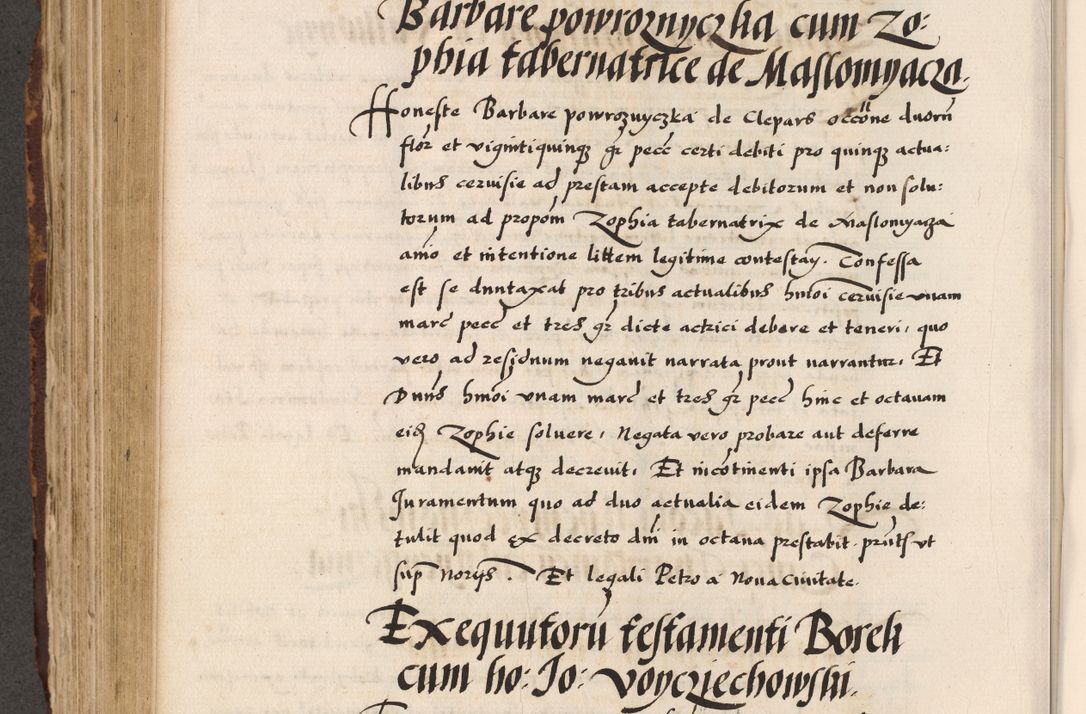 Barbare powroznyczka cum Zo:
phia tabernatrice de Maslomyacza.
Honeste Barbare powroznyczka de Clepars occōne duorū
flor̄ et vigintiquinq̨ gr̄ pecc̄ certi debiti pro quinq̨ actua:
libus ceruisie ad prestam accepte debitorum et non solu:
torum ad propōm Zophia tabernatrix de Maslomyacza
aīo et intentione littem legitime contestaṅ. Confessa
est se duntaxat pro tribus actualibus hmōi ceruisie vnam
marc̄ pecc̄ et tres gr̄ dicte actrici debere et teneri, quo
vero ad residuum negauit narrata prout narrantur. Et
Dnus hmōi vnam marc̄ et tres gr̄ pecc̄ hinc et octauam
eid̄ Zophie soluere, Negata vero probare aut deferre
mandauit atq̨ decreuit, Et incōtinenti ipsa Barbara
Juramentum quo ad duo actualia eidem Zophie de:
tulit quod ex decreto dn̄i in octaua prestabit. pn̄tt vt
sup̄ Norijs. Et legali Petro a Noua Ciuitate.
Exequutorū testamenti Borek
cum ho: Jo: Voycziechowski.